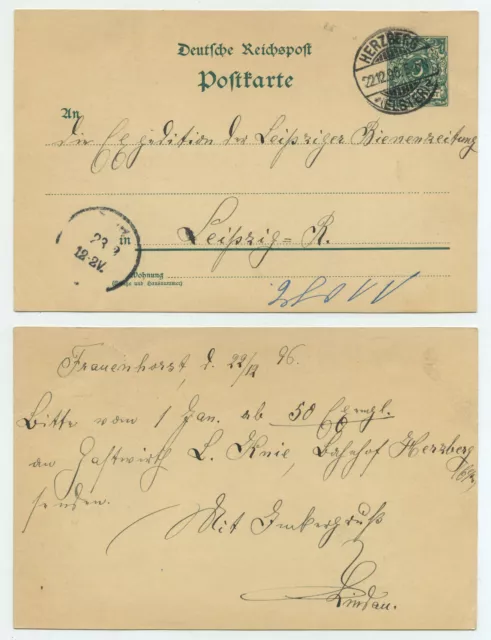 Deutsche Reichspost
Postkarte
HERZBERG
22.12.96
(ELSTER)
An
die Expedition der Leipziger Bienenzeitung
in
Leipzig=R.
23
12-2V.
Wohnung
(Straße und Hausnummer)
Frauenhorst, d. 22/12 96.
Bitte vom 1 Jan. ab 50 Exempl.
an Gastwirth L. Knie, Bahnhof Herzberg
senden.
Mit Imkergruß
Lindau.